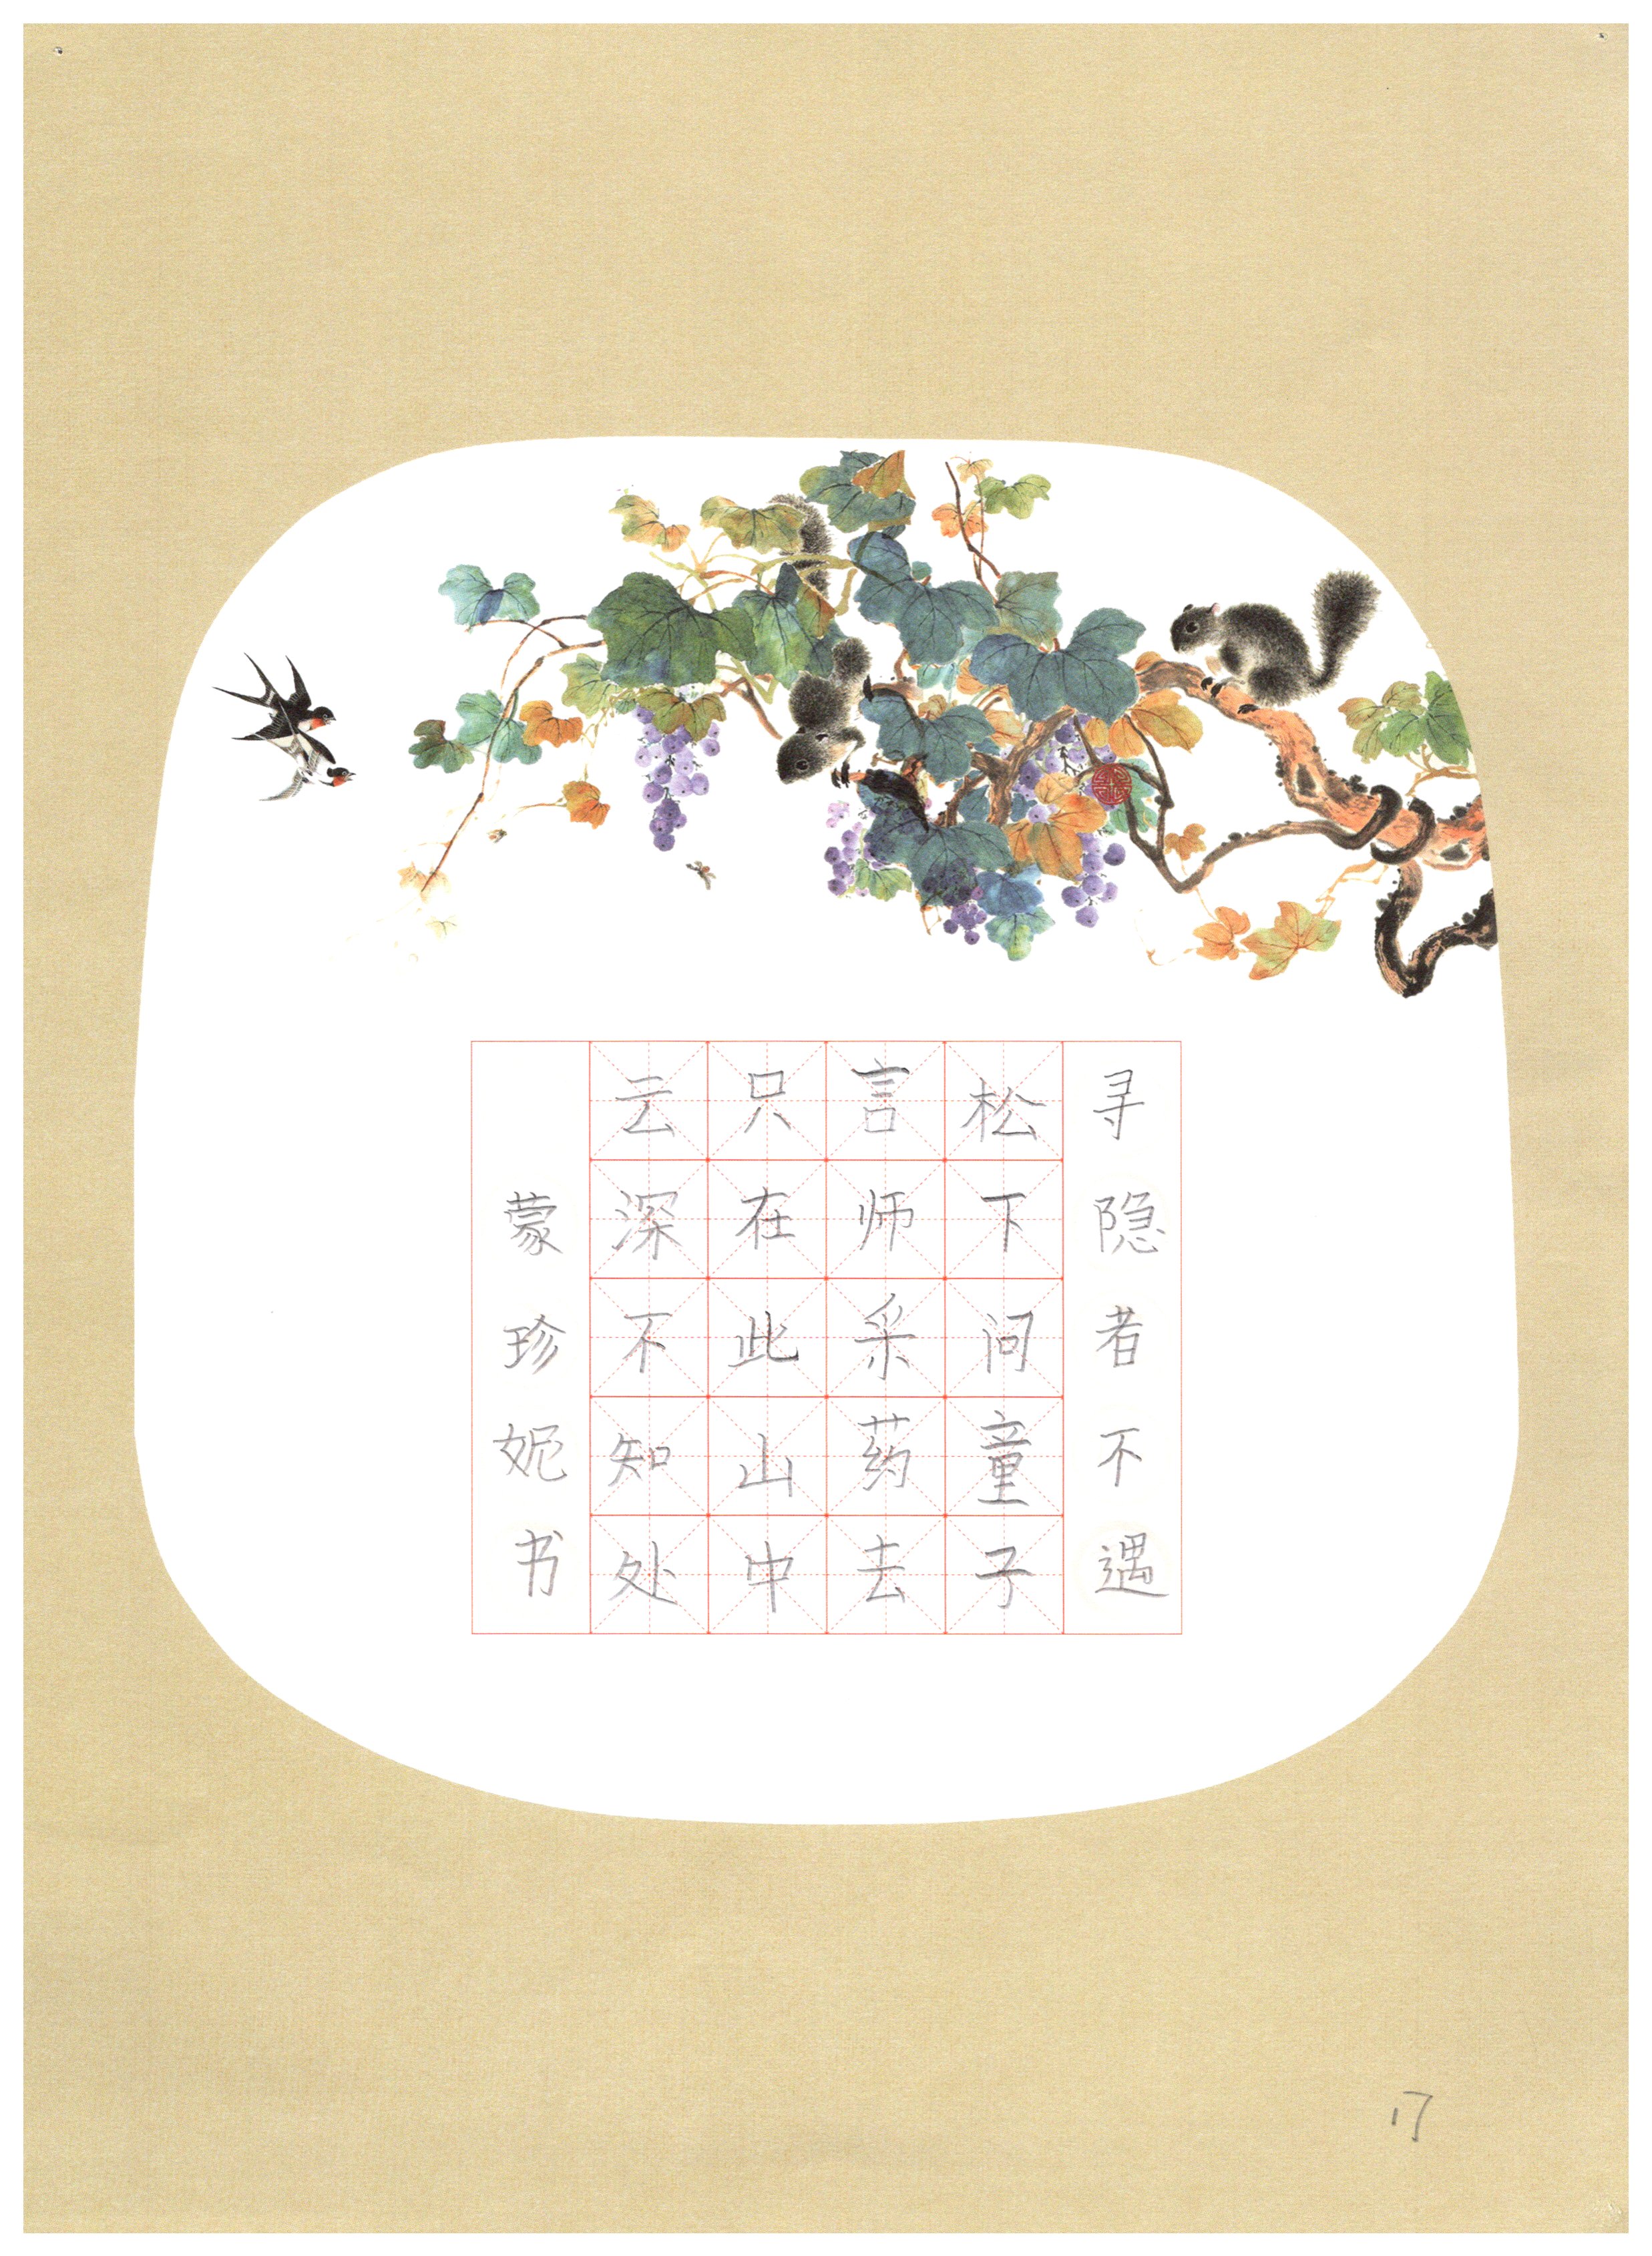 寻隐者不遇
松下问童子
言师采药去
只在此山中
云深不知处
蒙珍妮书
17